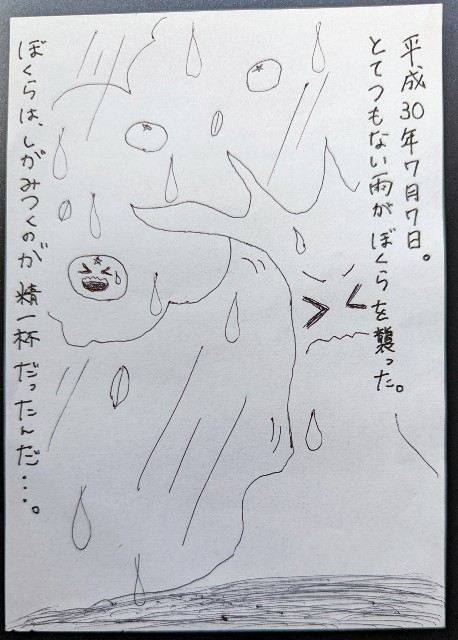 平成30年7月7日。
とてつもない雨がぼくらを襲った。
ぼくらは、しがみつくのが精一杯だったんだ…。